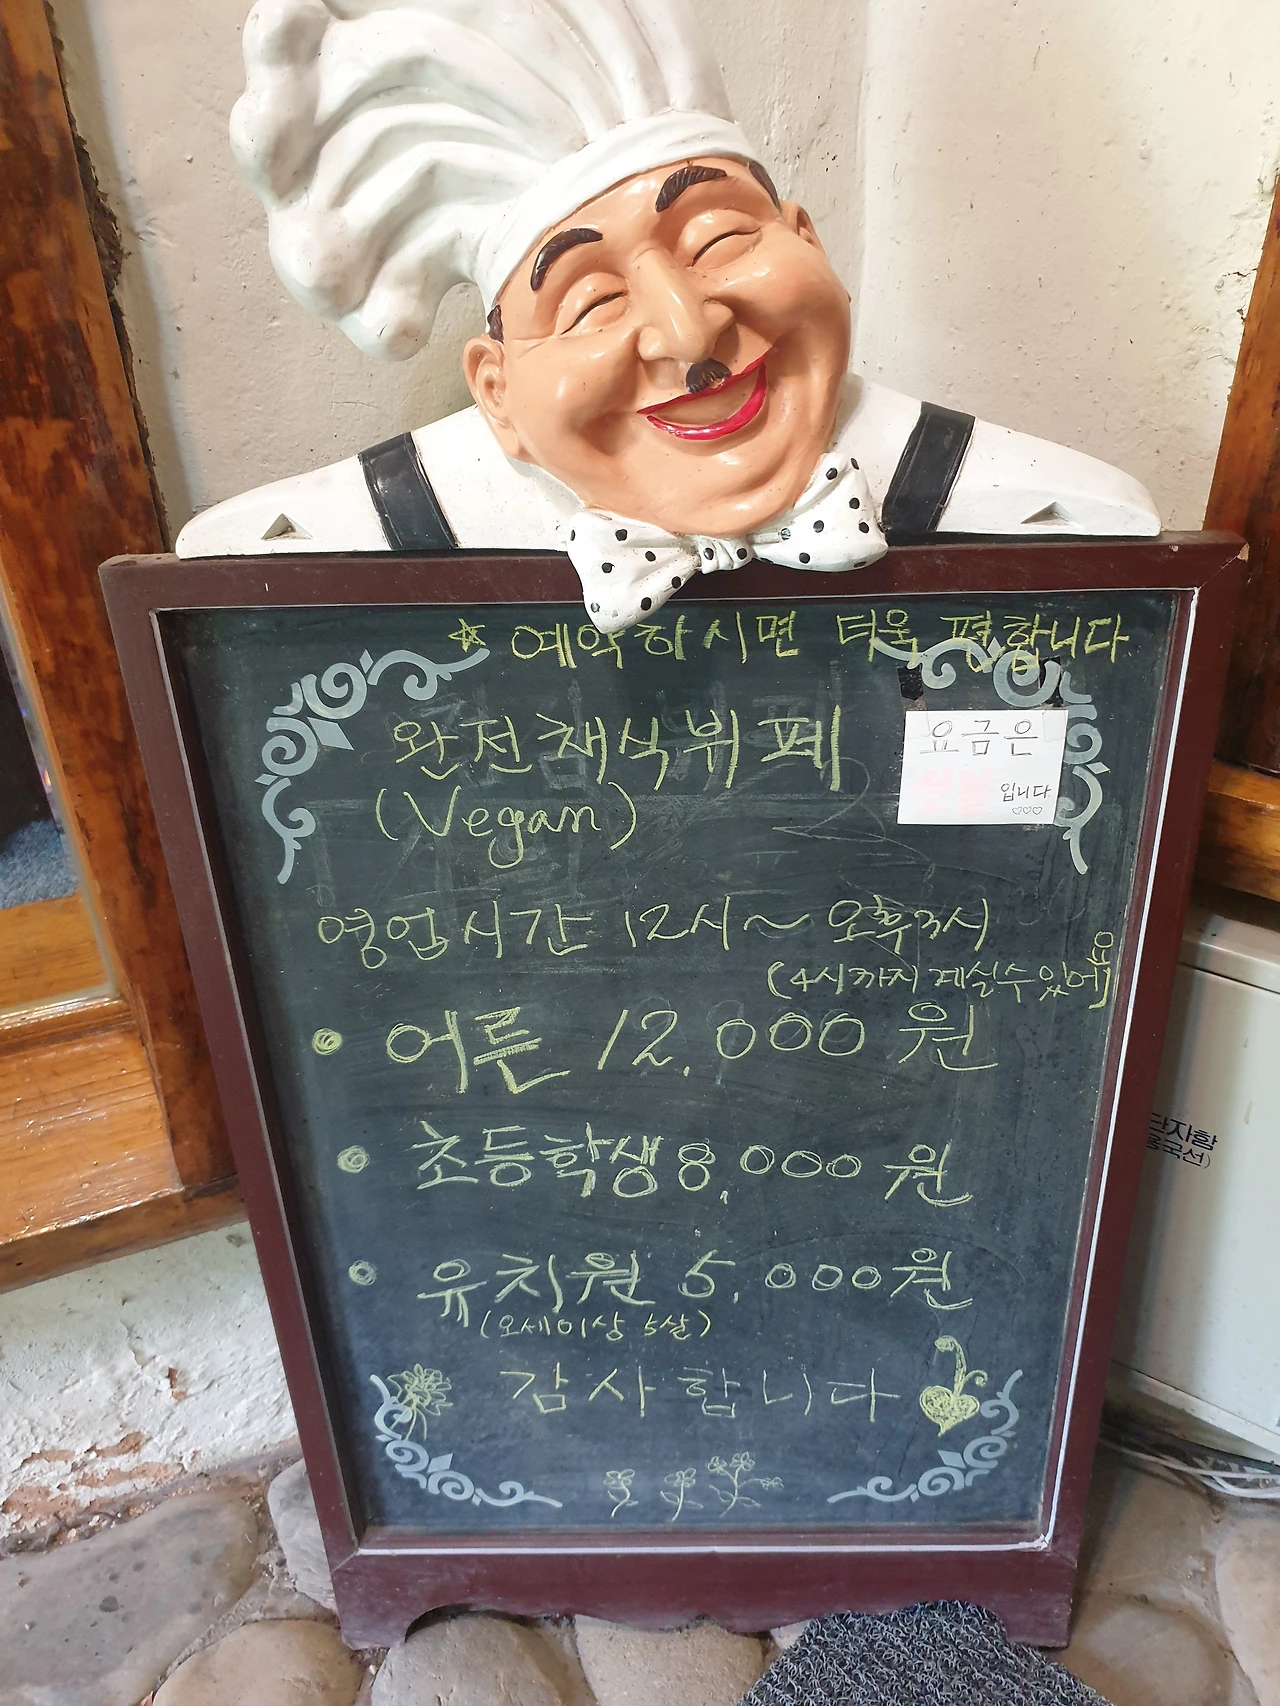 ☆ 예약하시면 더욱 편합니다
완전채식뷔페
(Vegan)
요금은
입니다
♡♡♡
영업시간 12시~오후3시
(4시까지 계실수있어요)
• 어른 12,000원
• 초등학생 8,000원
• 유치원 5,000원
(오세이상 5살)
감사합니다
단자함
국선)